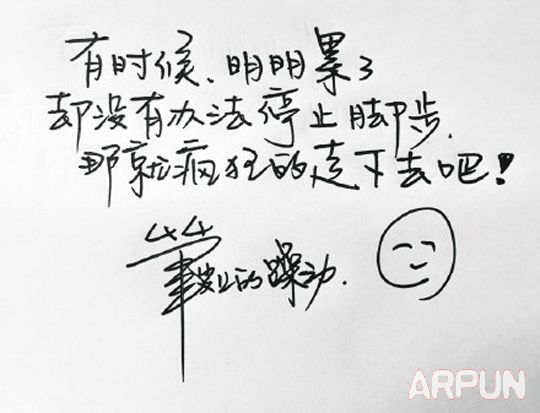 有时候、明明累了
却没有办法停止脚步.
那就疯狂的走下去吧!
肇业的躁动.
ARPUN